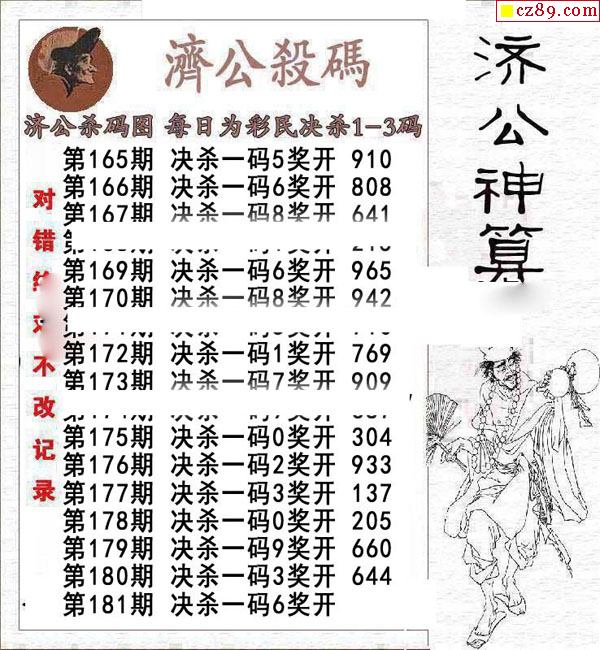 cz89.com
濟公殺碼
济公神算
济公杀码图 每日为彩民决杀1-3码
对错绝对不改记录
第165期 决杀一码5奖开 910
第166期 决杀一码6奖开 808
第167期 决杀一码8奖开 641
第169期 决杀一码6奖开 965
第170期 决杀一码8奖开 942
第172期 决杀一码1奖开 769
第173期 决杀一码7奖开 909
第175期 决杀一码0奖开 304
第176期 决杀一码2奖开 933
第177期 决杀一码3奖开 137
第178期 决杀一码0奖开 205
第179期 决杀一码9奖开 660
第180期 决杀一码3奖开 644
第181期 决杀一码6奖开